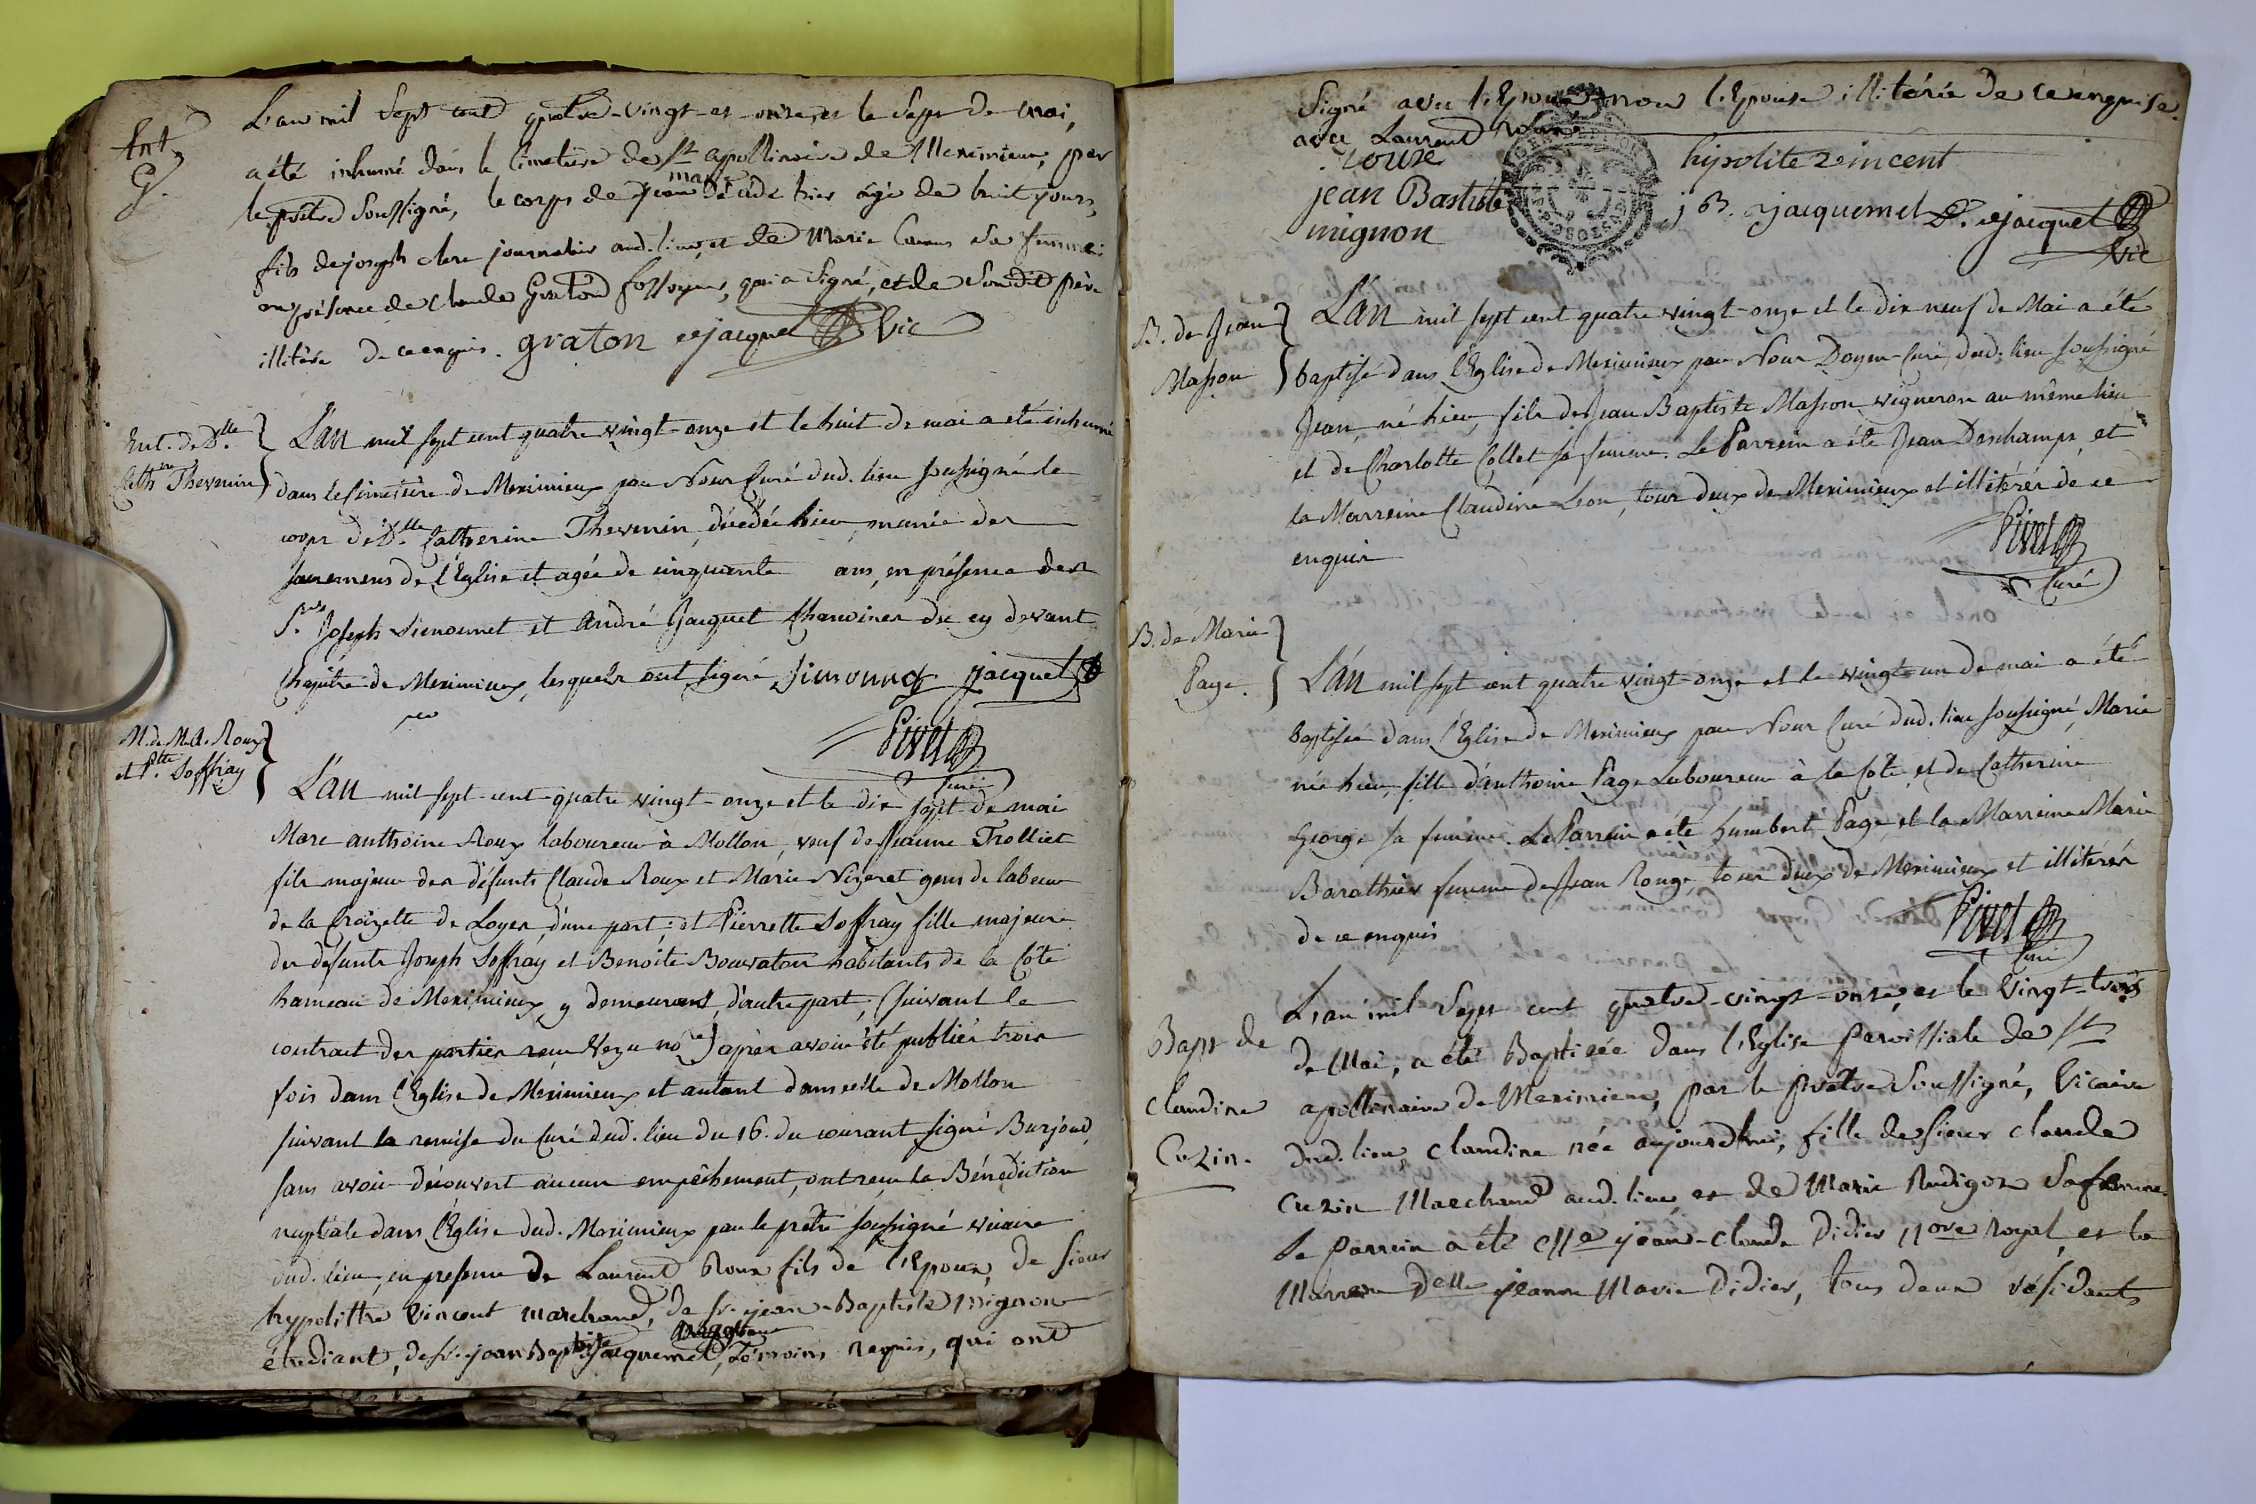 Ent.
G.
L'an mil sept cent quatre-vingt-et-onze, et le sept de mai,
a été inhumé dans le cimetière de St apollinaire de Meximieux, par
le prêtre soussigné, le corps de jean marie décédé hier agé de huit jours,
fils de joseph clerc journalier aud. lieu, et de Marie sa femme.
en présence de Claude Graton fossoyeur, qui a signé, et de son dit père
illitéré de ce enquis. graton ejacquet Vic
Ent. de Dlle
Cathine Thevenin
L'an mil sept cent quatre vingt-onze et le huit de mai a été inhumé
dans le Cimetière de Meximieux par Nous Curé dud. lieu soussigné le
corps de Dlle Catherine Thevenin, décédée hier, munie des
sacremens de l'Eglise et agée de cinquante ans, en présence des
Srs Joseph Simonnet et André Jacquet Chanoines du cy devant
Chapitre de Meximieux, lesquels ont signé Simonnet jacquet
Pivet
Curé
M. de M. A. Roux
et Ptte Soffray
L'an mil sept-cent-quatre vingt-onze et le dix sept de mai
Marc anthoine Roux laboureur à Mollon, veuf de Jeanne Trolliet
fils majeur des défunts Claude Roux et Marie Nizeret gens de labeur
de la Croizette de Loyes d'une part: et Pierrette Soffray fille majeure
des défunts Joseph Soffray et Benoite Bouvatou habitants de la Côte
hameau de Meximieux, y demeurant, d'autre part, (suivant le
contract des parties reçu Vezu nore) après avoir été publiés trois
fois dans l'Eglise de Meximieux et autant dans celle de Mollon
suivant la remise du Curé dud. lieu du 16. du courant signé Burjoud,
sans avoir découvert aucun empêchement, ont reçu la Bénédiction
nuptiale dans l'Eglise dud. Meximieux par le prêtre soussigné vicaire
dud. lieu, en presence de Laurent Roux fils de l'Epoux, de sieur
hypolitte Vincent marchand, de sr. jean-Baptiste Mignon
étudiant, de sr. jean Baptiste jacquemet, témoins requis, qui ont
signé avec l'Epoux non l'Epouse illitérée de ce enquise.
avec Laurent Roux
roux hipolite vincent
jean Bastiste j B. jacquemet ejacquet
mignon Vic
B. de Jean
Masson
L'an mil sept cent quatre vingt-onze et le dix neuf de Mai a été
baptisé dans l'Eglise de Meximieux par Nous Doyen-Curé dud. lieu soussigné
Jean, né hier, fils de Jean Baptiste Masson vigneron au même lieu
et de Charlotte Collet sa femme. Le Parrein a été Jean Deschamps, et
la Marreine Claudine Leon, tous deux de Meximieux et illitérés de ce
enquis
Pivet
Curé
B. de Marie
Page.
L'an mil sept cent quatre vingt-onze et le vingt-un de mai a été
baptisée dans l'Eglise de Meximieux par Nous Curé dud. lieu soussigné, Marie
née hier, fille d'anthoine Page Laboureur à la Côte, et de Catherine
George sa femme. Le Parrein a été humbert Page, et la Marreine Marie
Barathier femme de Jean Rouge, tous deux de Meximieux et illitérés
de ce enquis
Pivet
Curé
Bapt de
claudine
Cuzin.
L'an mil sept cent quatre-vingt-onze, et le Vingt-trois
de Mai, a été Baptisée dans l'Eglise paroissiale de St
apollinaire de Meximieux, par le prêtre soussigné, Vicaire
dud. lieu, claudine née aujourd'hui, fille de sieur claude
cuzin Marchand aud. lieu, et de Marie Rudigoz Sa femme.
Le parrein a été Me jean-claude Didier Nore royal, et la
Marreine Delle jeanne Marie Didier, tous deux résidants